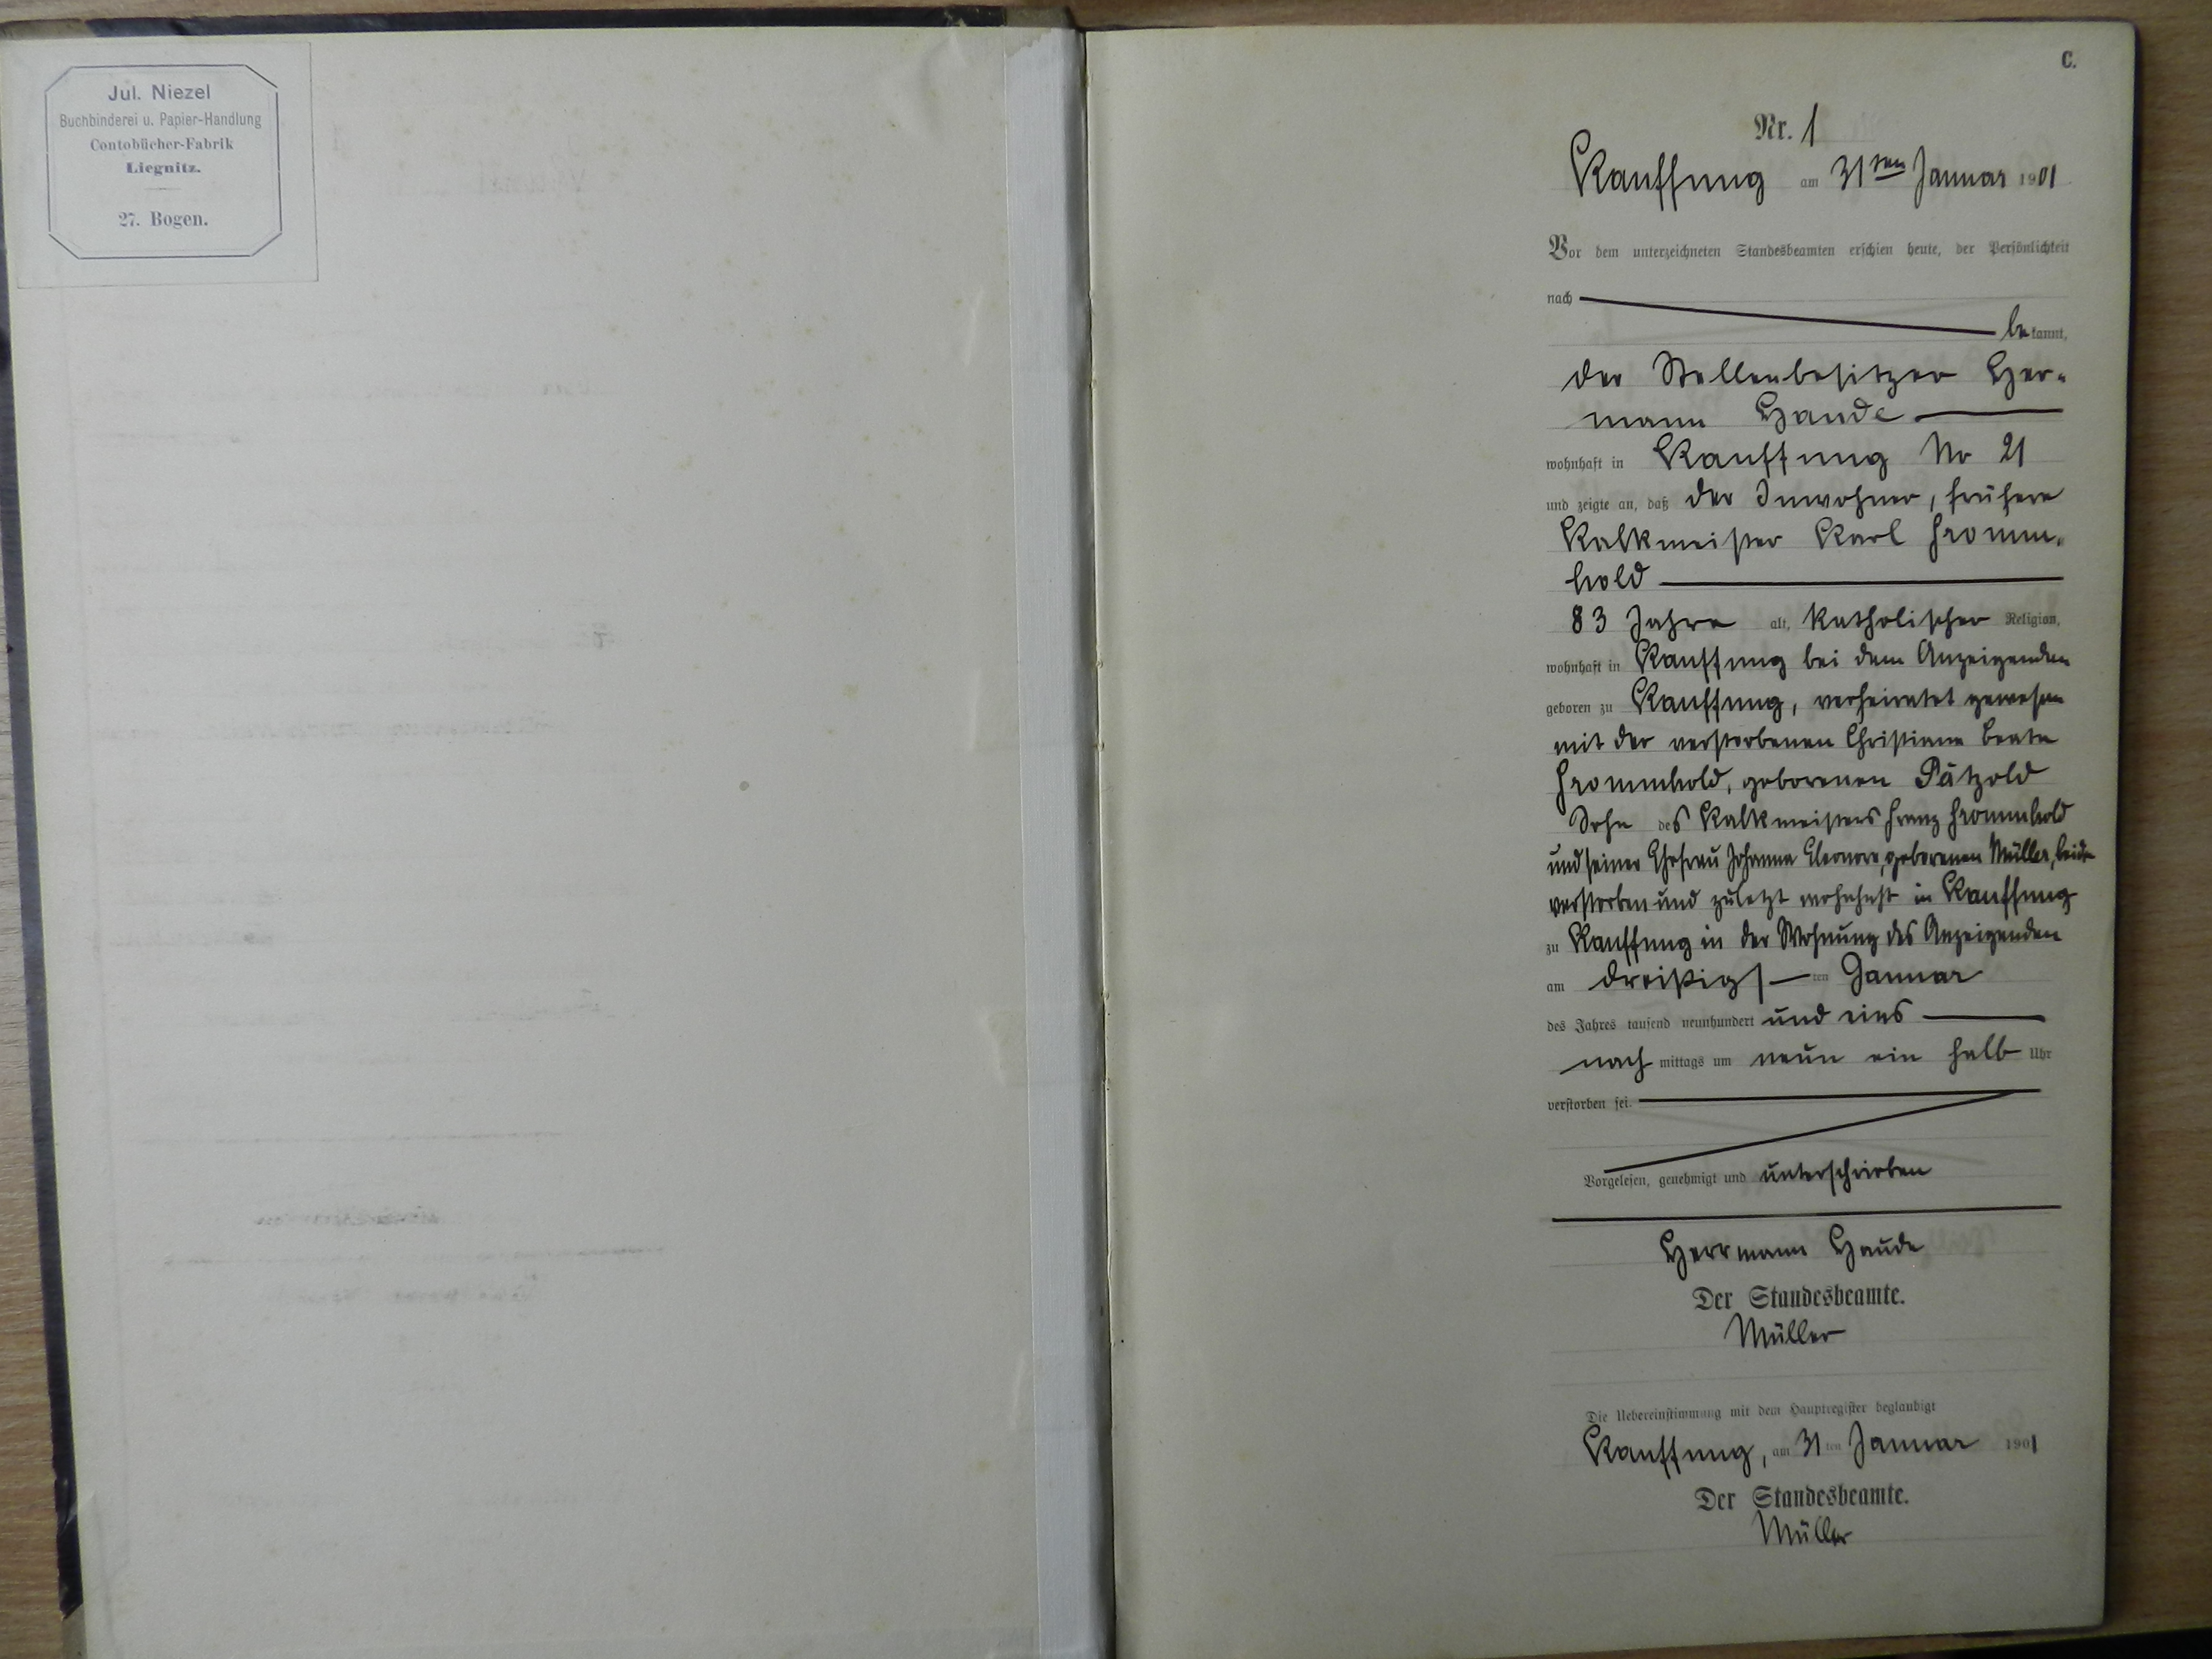 Jul. Niezel
Buchbinderei u. Papier-Handlung
Contobücher-Fabrik
Liegnitz.
27. Bogen.
C.
Nr. 1
Kauffung am 31ten Januar 1901
Vor dem unterzeichneten Standesbeamten erschien heute, der Persönlichkeit
nach
bekannt,
der Stellenbesitzer Her-
mann Haude
wohnhaft in Kauffung No 21
und zeigte an, daß der Inwohner, frühere
Kalkmeister Karl Fromm-
hold
83 Jahre alt, katholischer Religion,
wohnhaft in Kauffung bei dem Anzeigenden
geboren zu Kauffung, verheiratet gewesen
mit der verstorbenen Christiane Beate
Frommhold, geborenen Pätzold
Sohn des Kalkmeisters Franz Frommhold
und seiner Ehefrau Johanna Eleonore, geborenen Müller, beide
verstorben und zuletzt wohnhaft in Kauffung
zu Kauffung in der Wohnung des Anzeigenden
am dreißigsten Januar
des Jahres tausend neunhundert und eins
nach mittags um neun ein halb Uhr
verstorben sei.
Vorgelesen, genehmigt und unterschrieben
Herrmann Haude
Der Standesbeamte.
Müller
Die Uebereinstimmung mit dem Hauptregister beglaubigt
Kauffung, am 31ten Januar 1901
Der Standesbeamte.
Müller